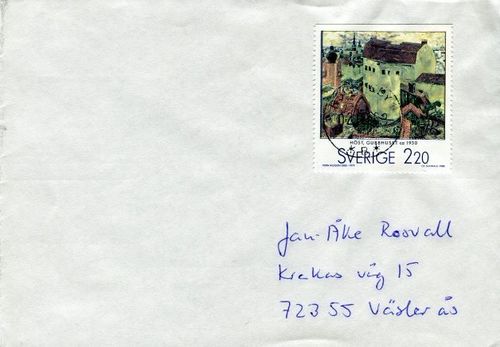 HÖST, GUBBHUSET ca 1930
SVERIGE 220
Jan-Åke Rosvall
Krakas väg 15
72355 Västerås